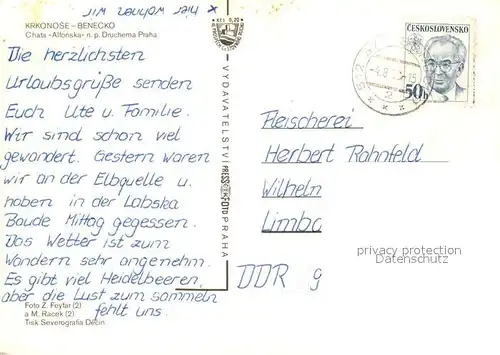 * Hier wohnen wir
KRKONOŠE – BENECKO
Chata «Alfonska» n. p. Druchema Praha
Die herzlichsten
Urlaubsgrüße senden
Euch Ute u. Familie.
Wir sind schon viel
gewandert. Gestern waren
wir an der Elbquelle u.
haben in der Labska
Baude Mittag gegessen.
Das Wetter ist zum
Wandern sehr angenehm.
Es gibt viel Heidelbeeren,
aber die Lust zum sammeln
fehlt uns.
Foto Z. Feyfar (2)
a M. Racek (2)
Tisk Severografia Děčín
KčS 0,20
VYDAVATELSTVÍ PRESSFOTO PRAHA
512
ČESKOSLOVENSKO
50h
Fleischerei
Herbert Rahnfeld
Wilhelm
Limba
DDR 9
privacy protection
Datenschutz